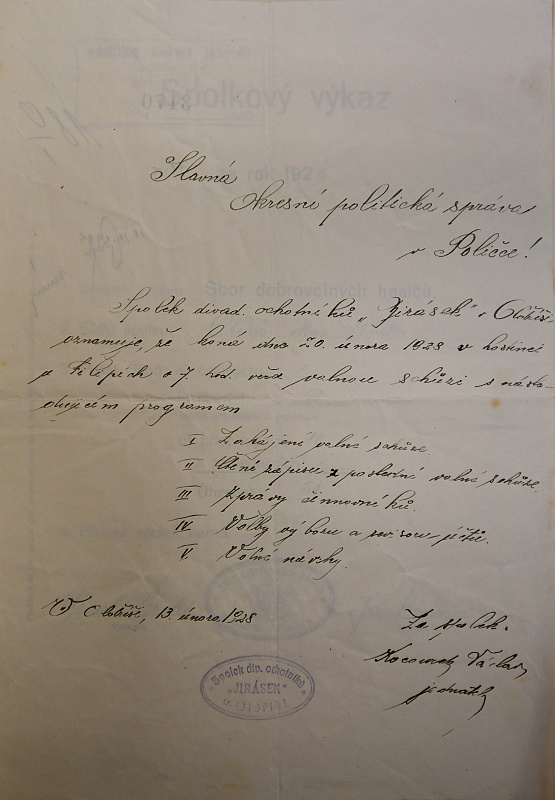 Spolkový výkaz
3170
rok 192
Sbor dobrovolných hasičů
Slavná
Okresní politická správa
v Poličce!
Spolek divad. ochotníků „Jirásek" v
oznamuje, že koná dne 20. února 1928 v hostinci
p. o 7. hod. več. valnou schůzi s násle-
dujícím programem
I Zahájení valné schůze.
II Čtení zápisu z poslední valné schůze.
III Zprávy činovníků.
IV Volby výboru a revisorů účtů.
V. Volné návrhy.
V 13. února 1928
Za spolek.
Kocourek Václav
jednatel
"Spolek div. ochotníků
„JIRÁSEK"